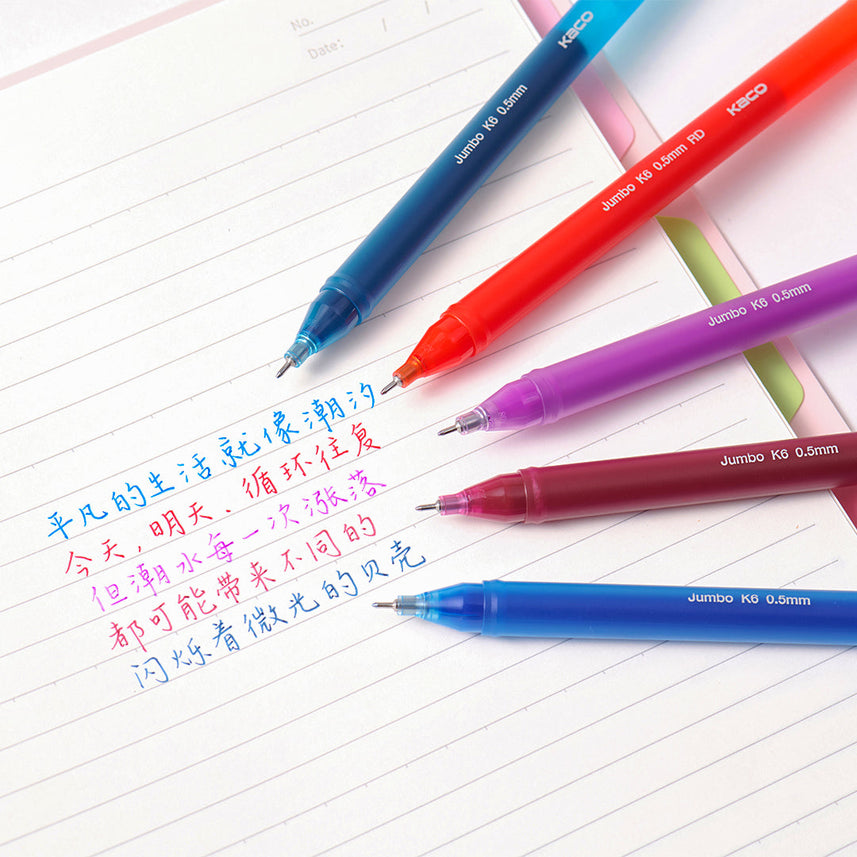 No.
Date: / /
KACO
Jumbo K6 0.5mm
KACO
Jumbo K6 0.5mm RD
Jumbo K6 0.5mm
Jumbo K6 0.5mm
Jumbo K6 0.5mm
平凡的生活就像潮汐
今天,明天、循环往复
但潮水每一次涨落
都可能带来不同的
闪烁着微光的贝壳